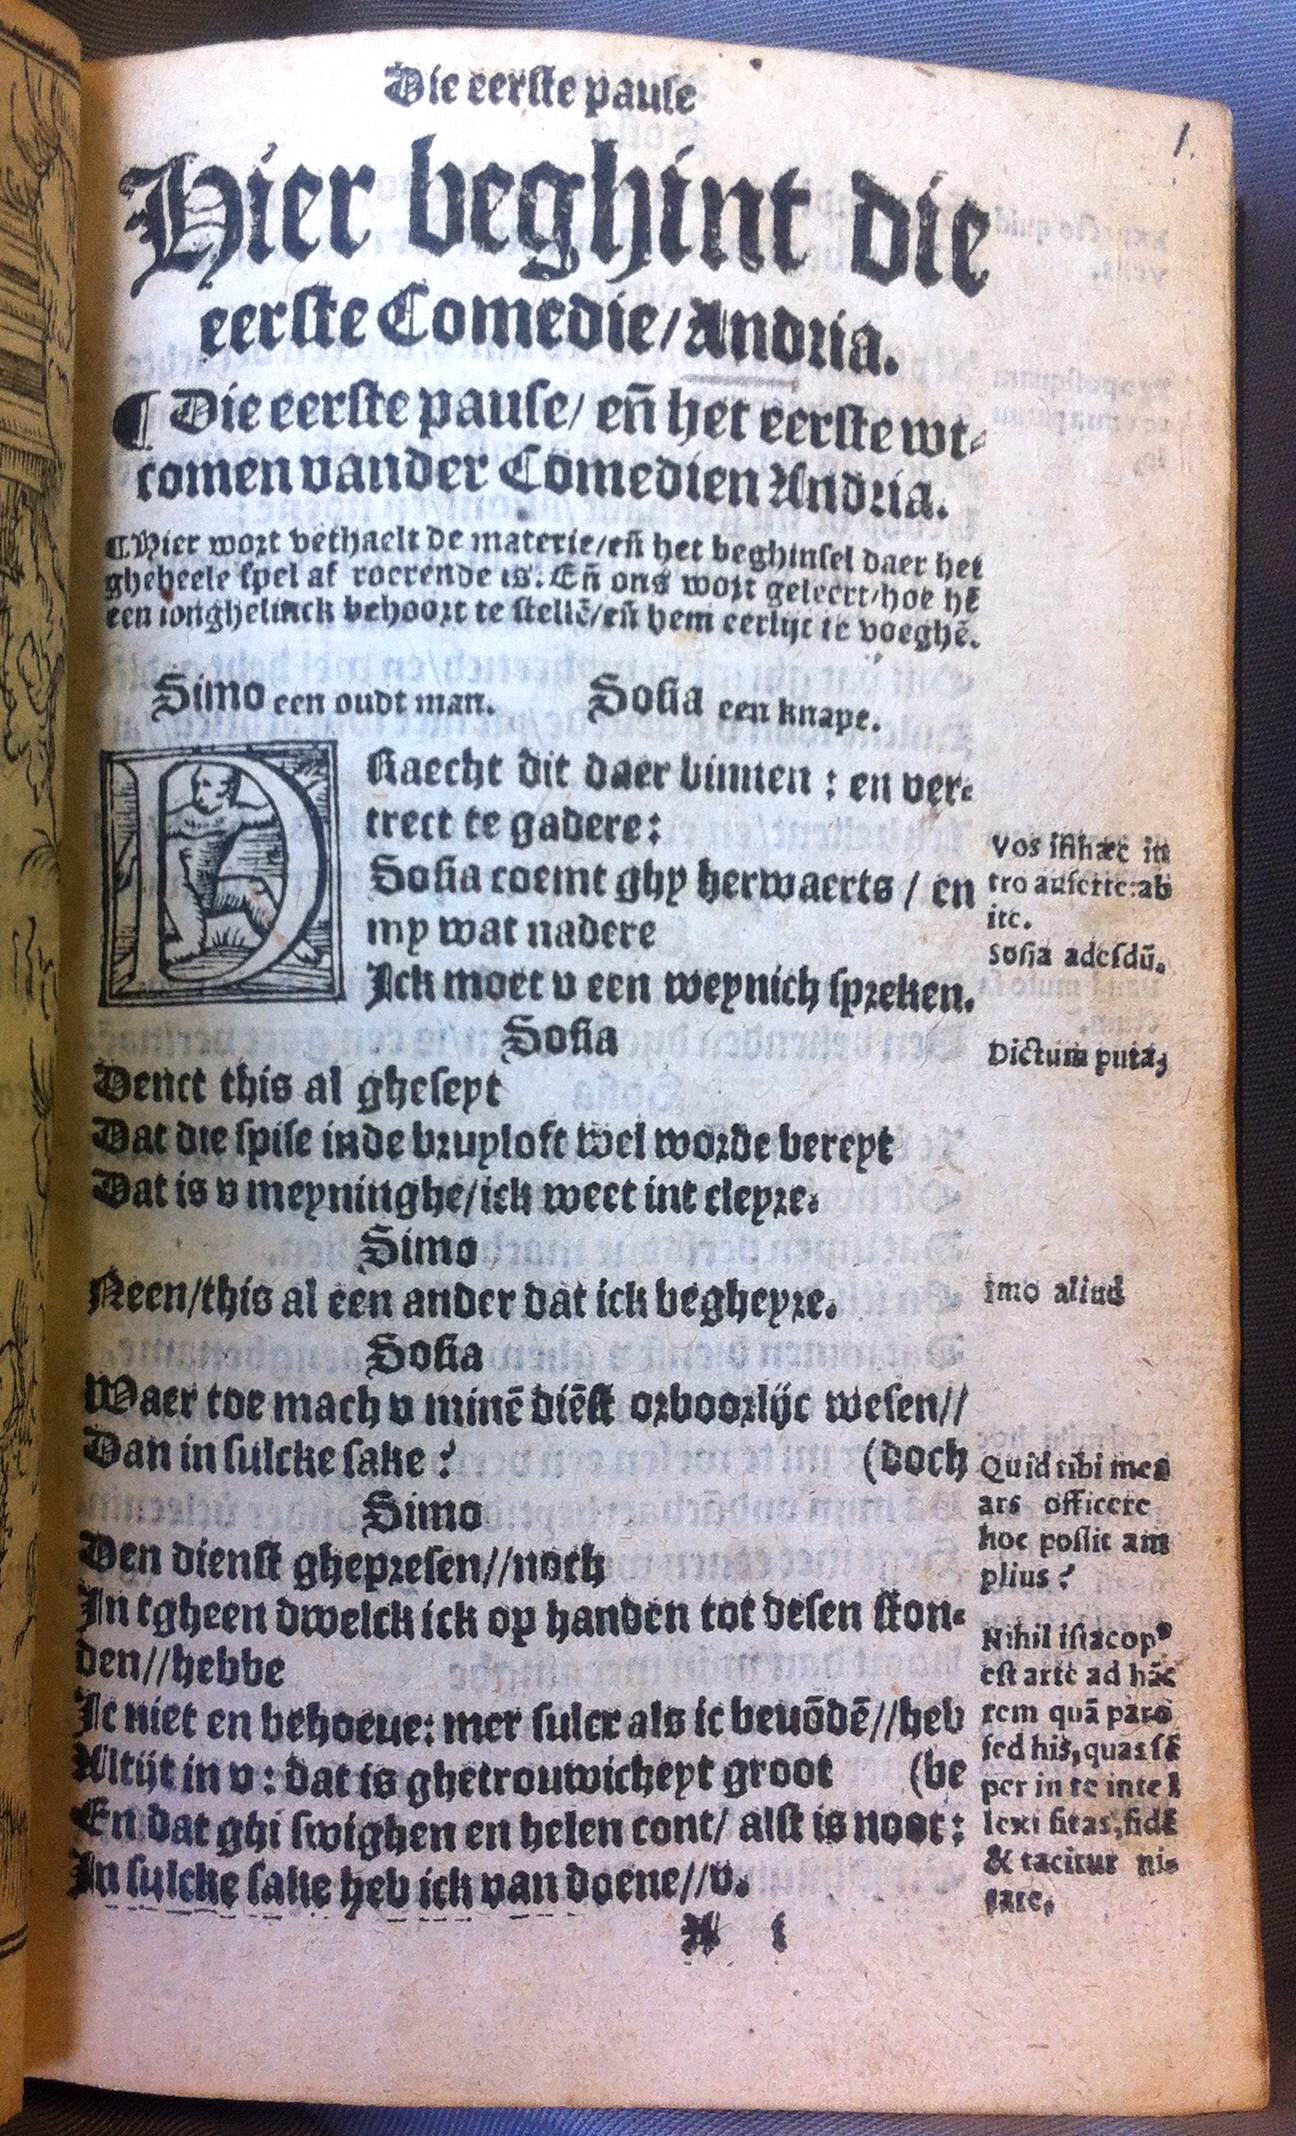 Die eerste pause
1.
Hier beghint die
eerste Comedie/Andria.
¶ Die eerste pause/ en̄ het eerste wt⸗
comen vander Comedien Andria.
¶ Hier wort verhaelt de materie/en̄ het beghinsel daer het
gheheele spel af roerende is. En̄ ons wort geleert/hoe hē
een ionghelinck behoort te stellē/en̄ hem eerlijc te voeghē.
Simo een oudt man. Sosia een knape.
DRaecht dit daer binnen : en ver⸗
trect te gadere:
Sosia coemt ghy herwaerts / en
my wat nadere
Ick moet v een weynich spreken.
Sosia
Denct this al gheseyt
Dat die spise inde bruyloft wel worde bereyt
Dat is v meyninghe/ick weet int cleyre.
Simo
Neen/this al een ander dat ick begheyre.
Sosia
Waer toe mach v minē diēst orboorlijc wesen//
Dan in sulcke sake ? (doch
Simo
Den dienst ghepresen//noch
In tgheen dwelck ick op handen tot desen ston⸗
den//hebbe
Ic niet en behoeue: mer sulcx als ic beuōdē//heb
Altijt in v : dat is ghetrouwicheyt groot (be
En dat ghi swighen en helen cont/ alst is noot:
In sulcke sake heb ick van doene//v.
A i
Vos isthæc in
tro auferte:ab
ite.
Sosia adesdū.
Dictum puta,
imo aliud
Quid tibi mea
ars officere
hoc possit am
plius ?
Nihil istac opꝰ
est arte ad hāc
rem quā paro
sed his,quas sē
per in te intel
lexi sitas,fidē
& tacitur ni⸗
tate.